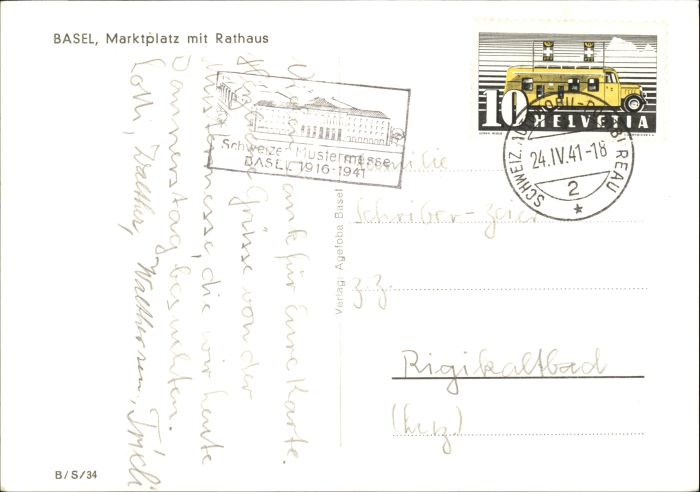 BASEL, Marktplatz mit Rathaus
Vielen Dank für Eure Karte.
Grüsse von der
Mustermesse, die wir heute
Donnerstag besuchten.
Lotti, Walther, Walther sen, Trudi
Schweizer Mustermesse
BASEL 1916-1941
Verlag: Agefoba Basel
B/S/34
10 HELVETIA
SCHWEIZ.
24.IV.41-18
2
Familie
Schriber-Zeier
z.Z.
Rigikaltbad
(Luz.)